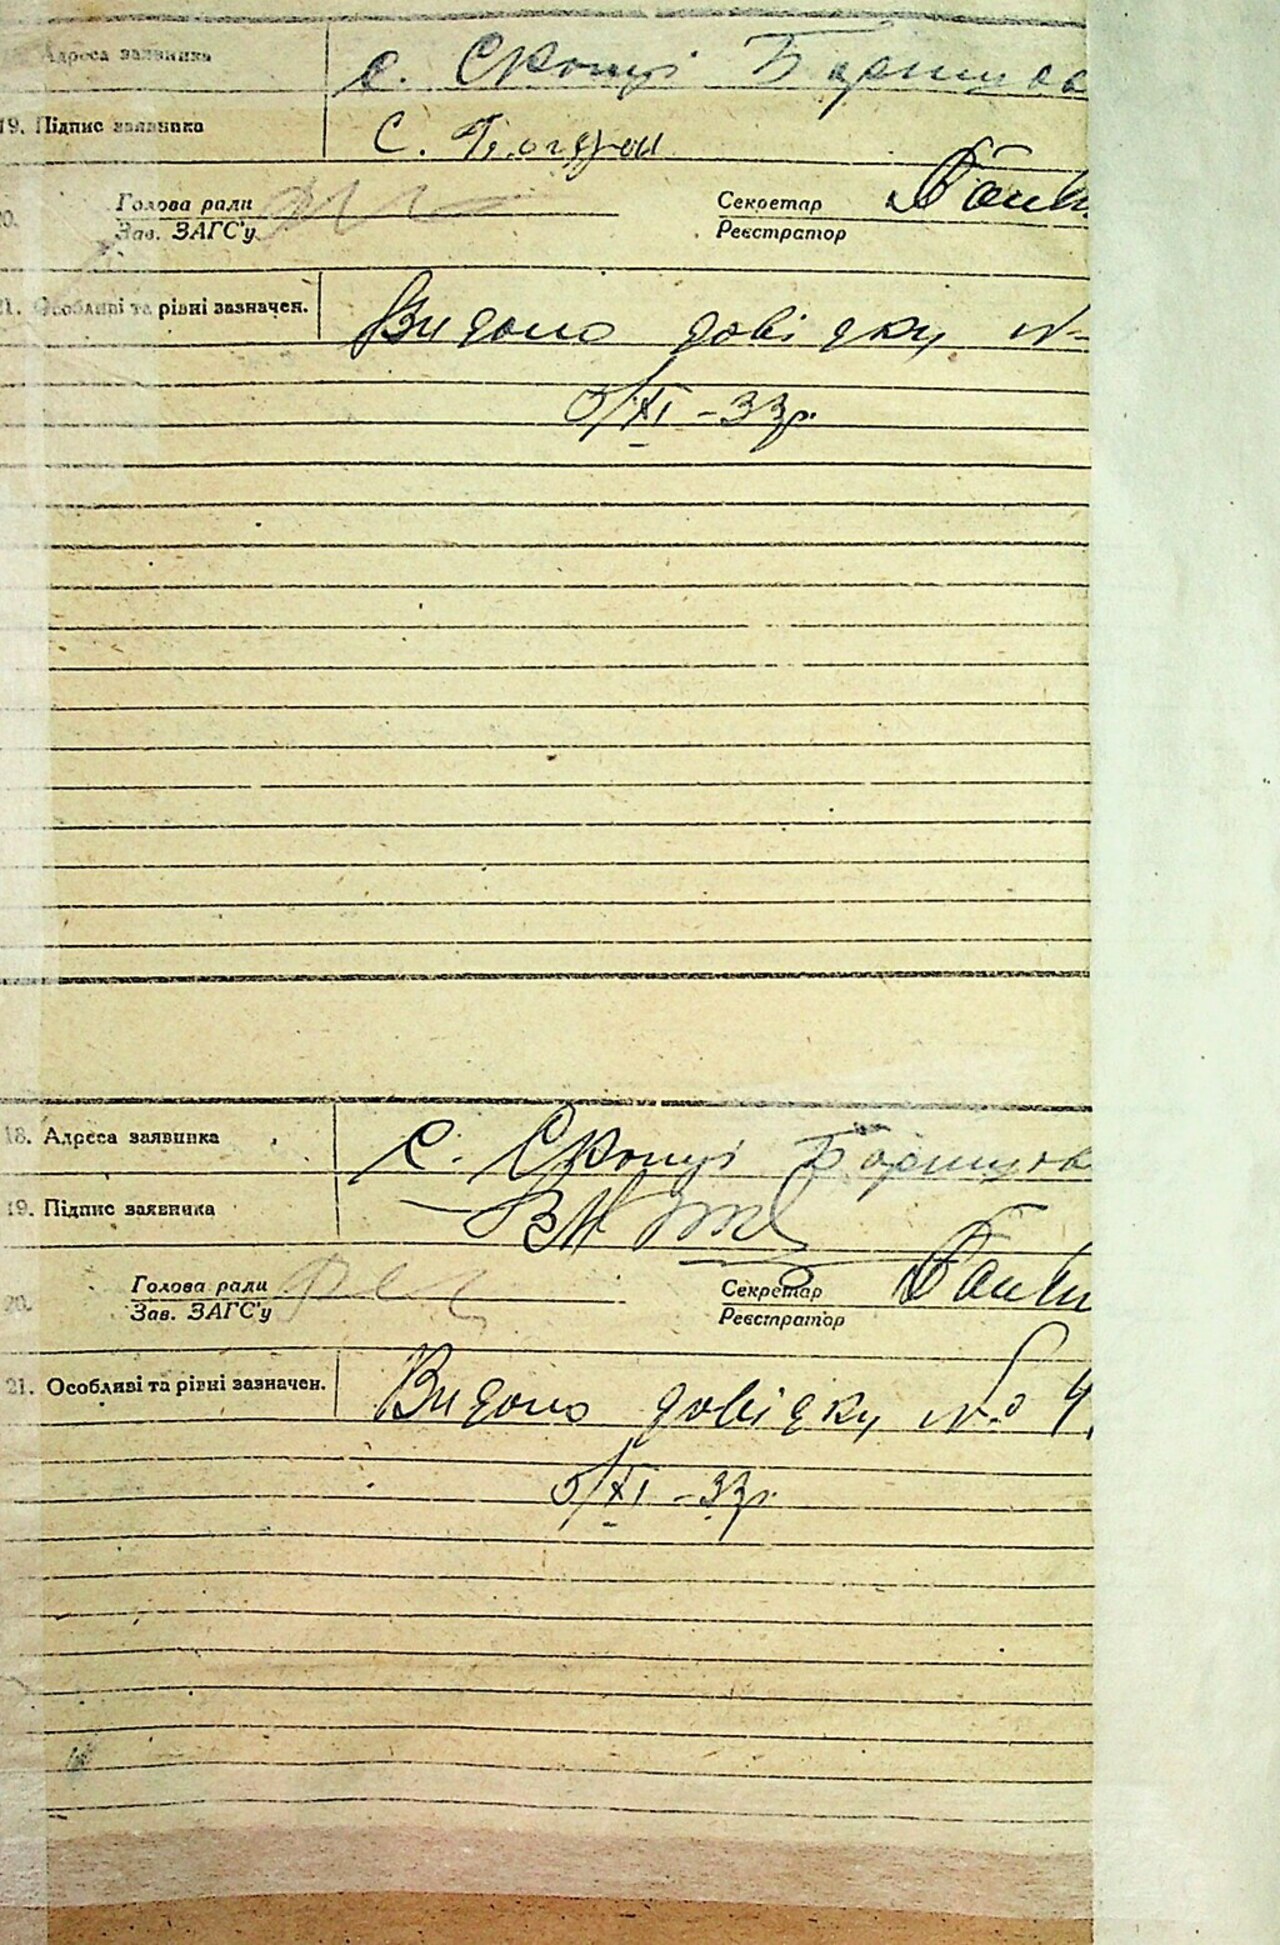 Адреса заявника с. Скопці
19. Підпис заявника С.
20. Голова ради Секретар
Зав. ЗАГС'у Реєстратор
21. Особливі та рівні зазначен. Видано довідку №
5/XI - 33р.
18. Адреса заявника с. Скопці
19. Підпис заявника
20. Голова ради Секретар
Зав. ЗАГС'у Реєстратор
21. Особливі та рівні зазначен. Видано довідку № 4
5/XI - 33р.